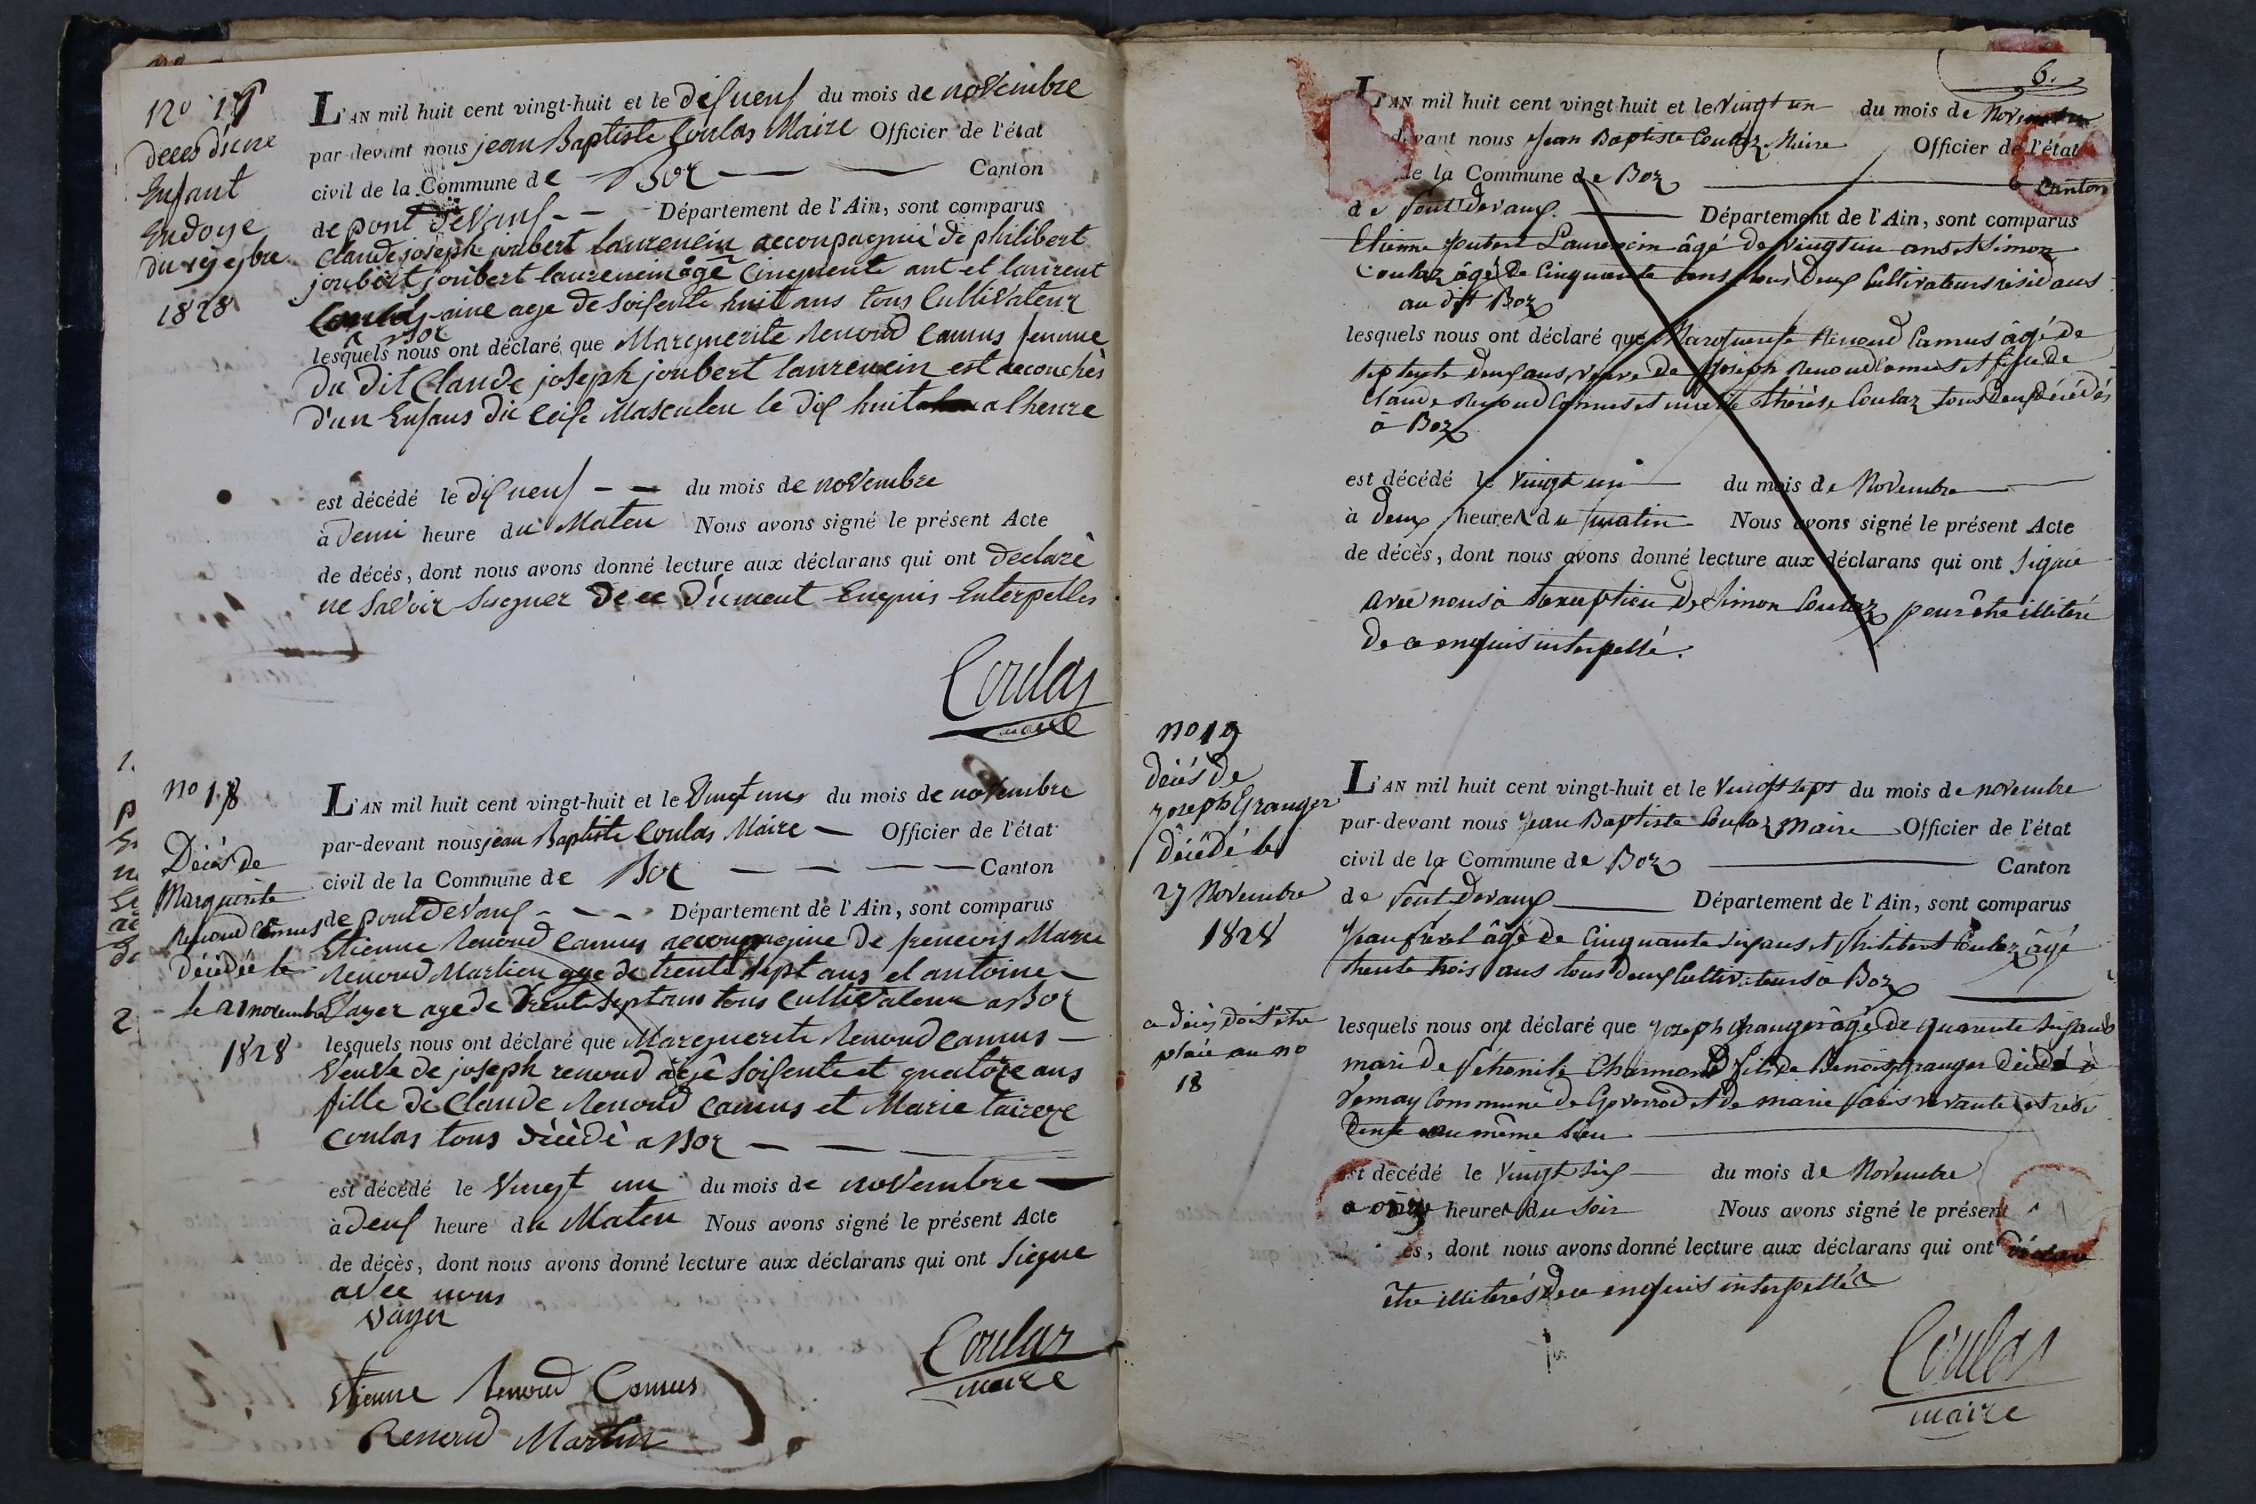 no 17
deces d'une
Enfant
Endoye
du 19 9bre
1828
L'AN mil huit cent vingt-huit et le dis neuf du mois de novembre
par-devant nous jean Baptiste Coulas Maire Officier de l'état
civil de la Commune de Boz Canton
de pont devaus Département de l'Ain, sont comparus
Claude joseph joubert laurencin accompagnié de philibert
joubert joubert laurencin âgé cinquente ant et laurent
Coulas aine age de soisente huit ans tous Cultivateur
a Boz
lesquels nous ont déclaré que Marguerite Renoud Camus femme
du dit Claude joseph joubert laurencin est acouchès
d'un Enfans du Ceise Masculeu le dis huit a lheure
est décédé le dis neuf du mois de novembre
à demi heure du Mateu Nous avons signé le présent Acte
de décés, dont nous avons donné lecture aux déclarans qui ont declarè
ne Savoir Siegner de ce dument Enquis Enterpelles
Coulas
maire
no 18
Décès de
Marguerite
Renoud Camus
décédée le
le 21 novembre
1828
L'AN mil huit cent vingt-huit et le Vingt une du mois de novembre
par-devant nous jean Baptiste Coulas Maire Officier de l'état
civil de la Commune de Boz Canton
de pont de Vaus Département de l'Ain, sont comparus
Etienne Renoud Camus accompagine de frencois Marie
Renoud Martien age de trente sept ans et antoine
Vayer age de Trente Sept ans tous Cultivateur a Boz
lesquels nous ont déclaré que Marguerite Renoud Camus
Veuve de joseph renoud âgé soisente et quatorze ans
fille de Claude Renoud Camus et Marie taireze
Coulas tous décèdè a Boz
est décédé le Vingt une du mois de novembre
à deus heure du Mateu Nous avons signé le présent Acte
de décès, dont nous avons donné lecture aux déclarans qui ont Siegne
avec nous
Vayer
Coulas
maire
Etienne Renoud Camus
Renoud Martin
6.
L'AN mil huit cent vingt-huit et le vingt un du mois de Novembre
devant nous Jean Baptiste Coulaz Maire Officier de l'état
de la Commune de Boz Canton
de Pont Devaux Département de l'Ain, sont comparus
Etienne Joubert Laurencin âgé de vingt un ans et Simon
Coulaz âgé de Cinquante ans tous deux Cultivateurs résidans
au dit Boz
lesquels nous ont déclaré que Marguerite Renoud Camus âgé de
septente deux ans, veuve de Joseph Renoud Camus et fille de
Claude Renoud Camus et Marie Thérèse Coulaz tous deux décédés
à Boz
est décédé le Vingt un du mois de Novembre
à deux heures du matin Nous avons signé le présent Acte
de décès, dont nous avons donné lecture aux déclarans qui ont signé
avec nous à l'exception de Simon Coulaz pour être illitéré
de ce enquis interpellé.
no 19
décès de
Joseph Granger
décédé le
27 Novembre
1828
ce décès doit être
placé au no
18
L'AN mil huit cent vingt-huit et le Vingt sept du mois de novembre
par-devant nous Jean Baptiste Coulaz maire Officier de l'état
civil de la Commune de Boz Canton
de Pont Devaux Département de l'Ain, sont comparus
Jean âgé de Cinquante six ans et Philibert Coulaz âgé
trente trois ans tous deux Cultivateurs à Boz
lesquels nous ont déclaré que Joseph Granger âgé de quarante six ans
mari de Pétronile Charmond fils de Benoist Granger décédé à
Commune de Gorrevod et de marie vivante et rési
dente au même lieu
est décédé le Vingt six du mois de Novembre
à onze heures du soir Nous avons signé le présent
ès, dont nous avons donné lecture aux déclarans qui ont déclaré
être illiterés de ce enquis interpellés
Coulas
maire